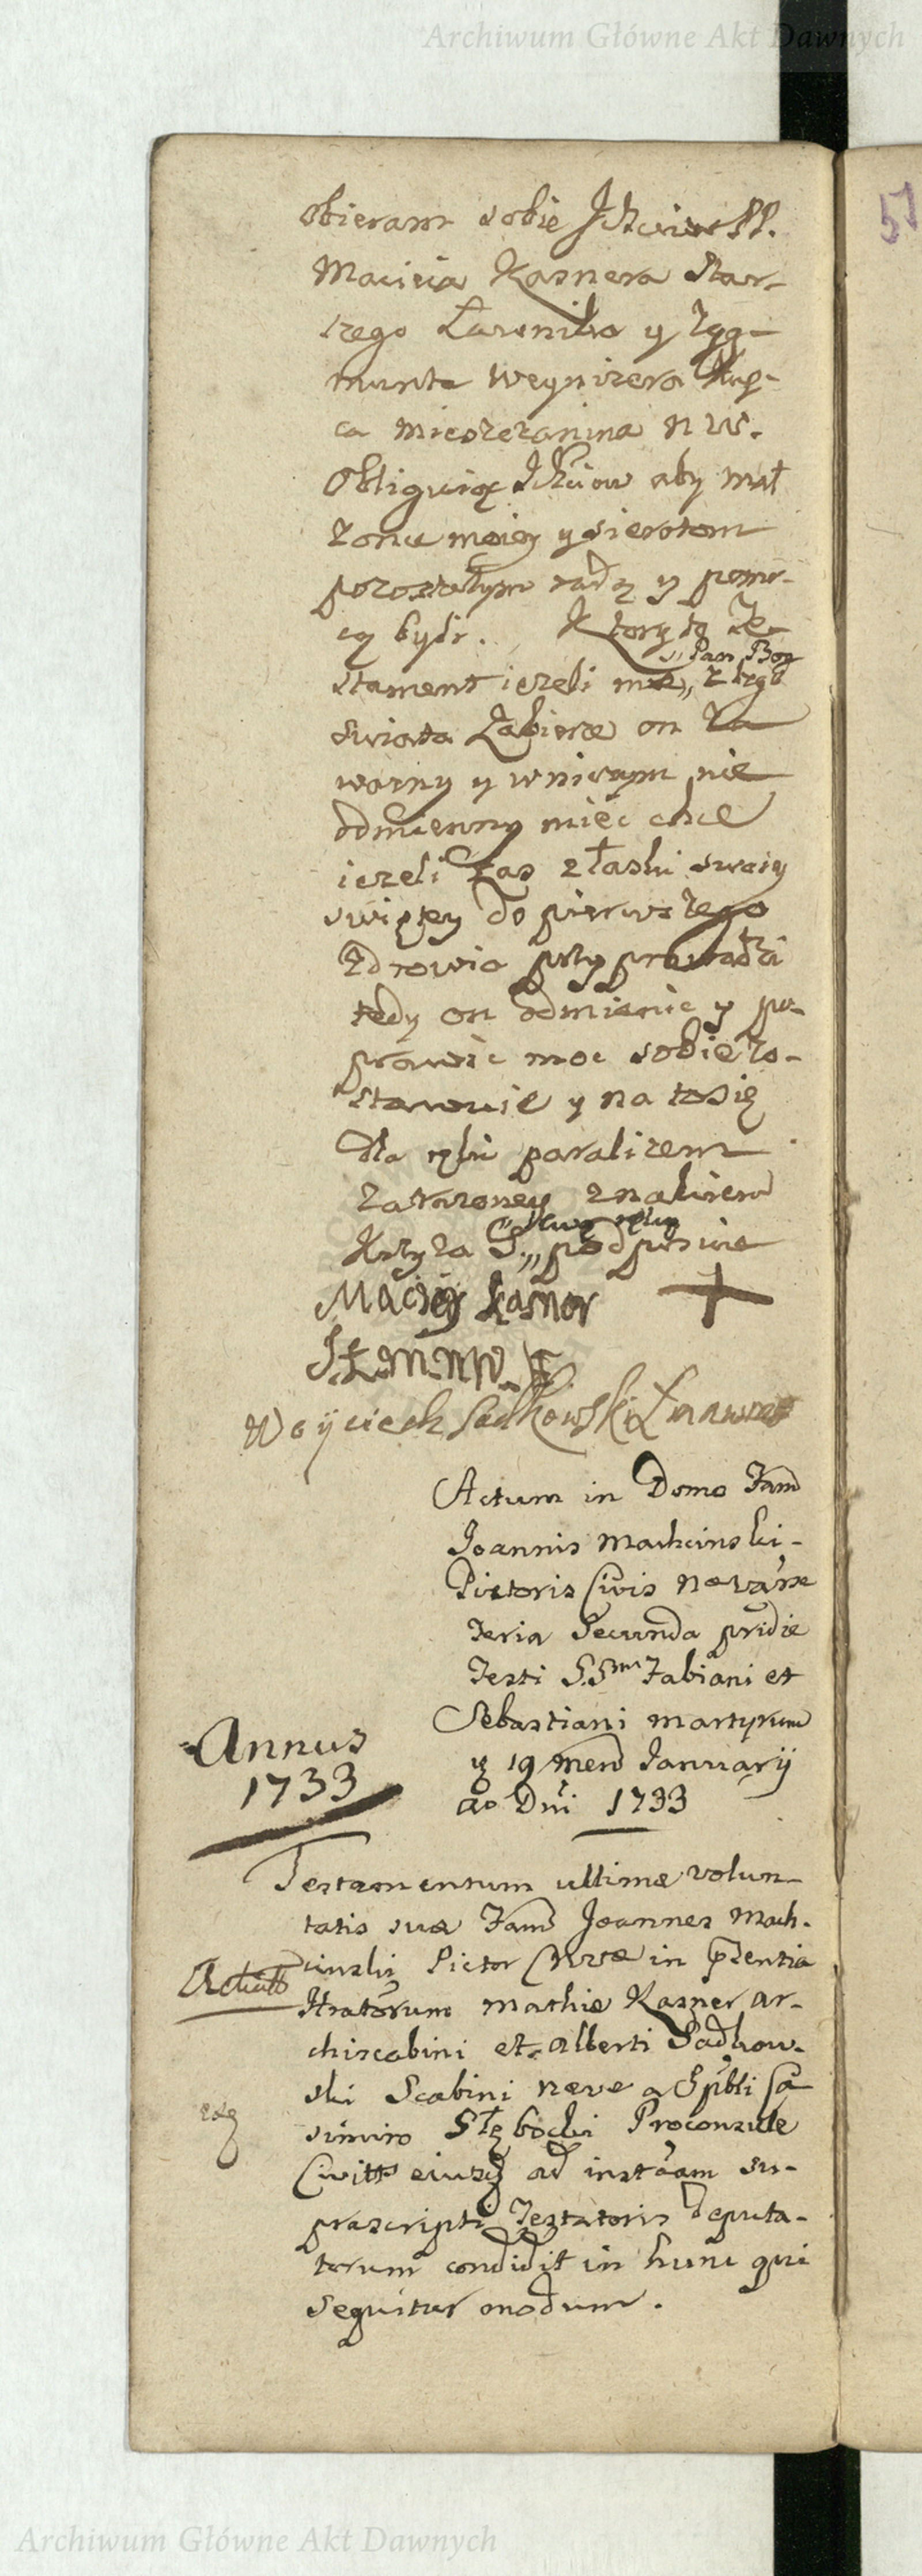 Archiwum Główne Akt Dawnych
51
obieram sobie Ichmciow PP.
Macieia Kasnera Star-
szego Ławnika y Zyg-
munta Weynizera Kup-
ca miesczanina N W.
Obliguiąc Ichciow aby mał
zonce moiey y sierotom
pozostałym radą y pomo-
cą bydz. Ktory to Te-
stament iezeli mie „Pan Bog z tego
swiata zabierze on za
wazny y wniczym nie
odmienny miec chcę
iezeli zas z łaski swoiey
swiętey do pierwszego
zdrowia przyprowadzi
tedy on odmienic y po-
prawic moc sobie zo-
stawuie y na to się
dla ręki paralizem
zarazoney znakiem
Krzyza S. „swą ręką podpisuie
Maciey Kasner +
S.Ł.M.NW.
Woyciech Sadkowski Ł
Actum in Domo Fam
Joannis Machcinski
Pictoris Civis Novae
Feria Secunda pridie
Festi S.Srm Fabiani et
Sebastiani martyrum
19 mens Januarij
Ao Dni 1733
Annus
1733
Testamentum ultimæ volun-
tatis suæ Fam Joannes Mach-
cinski Pictor in Pzentia
Actum
Hratorum Mathiæ Kazner Ar-
chiscabini et Alberti Sadkow-
ski Scabini novæ a Spbli Ca-
simiro Stębocki Proconsule
Civitt eiusq ad instaam su-
prascripti Testatoris deputa-
torum condidit in hunc qui
sequitur modum.
Archiwum Główne Akt Dawnych